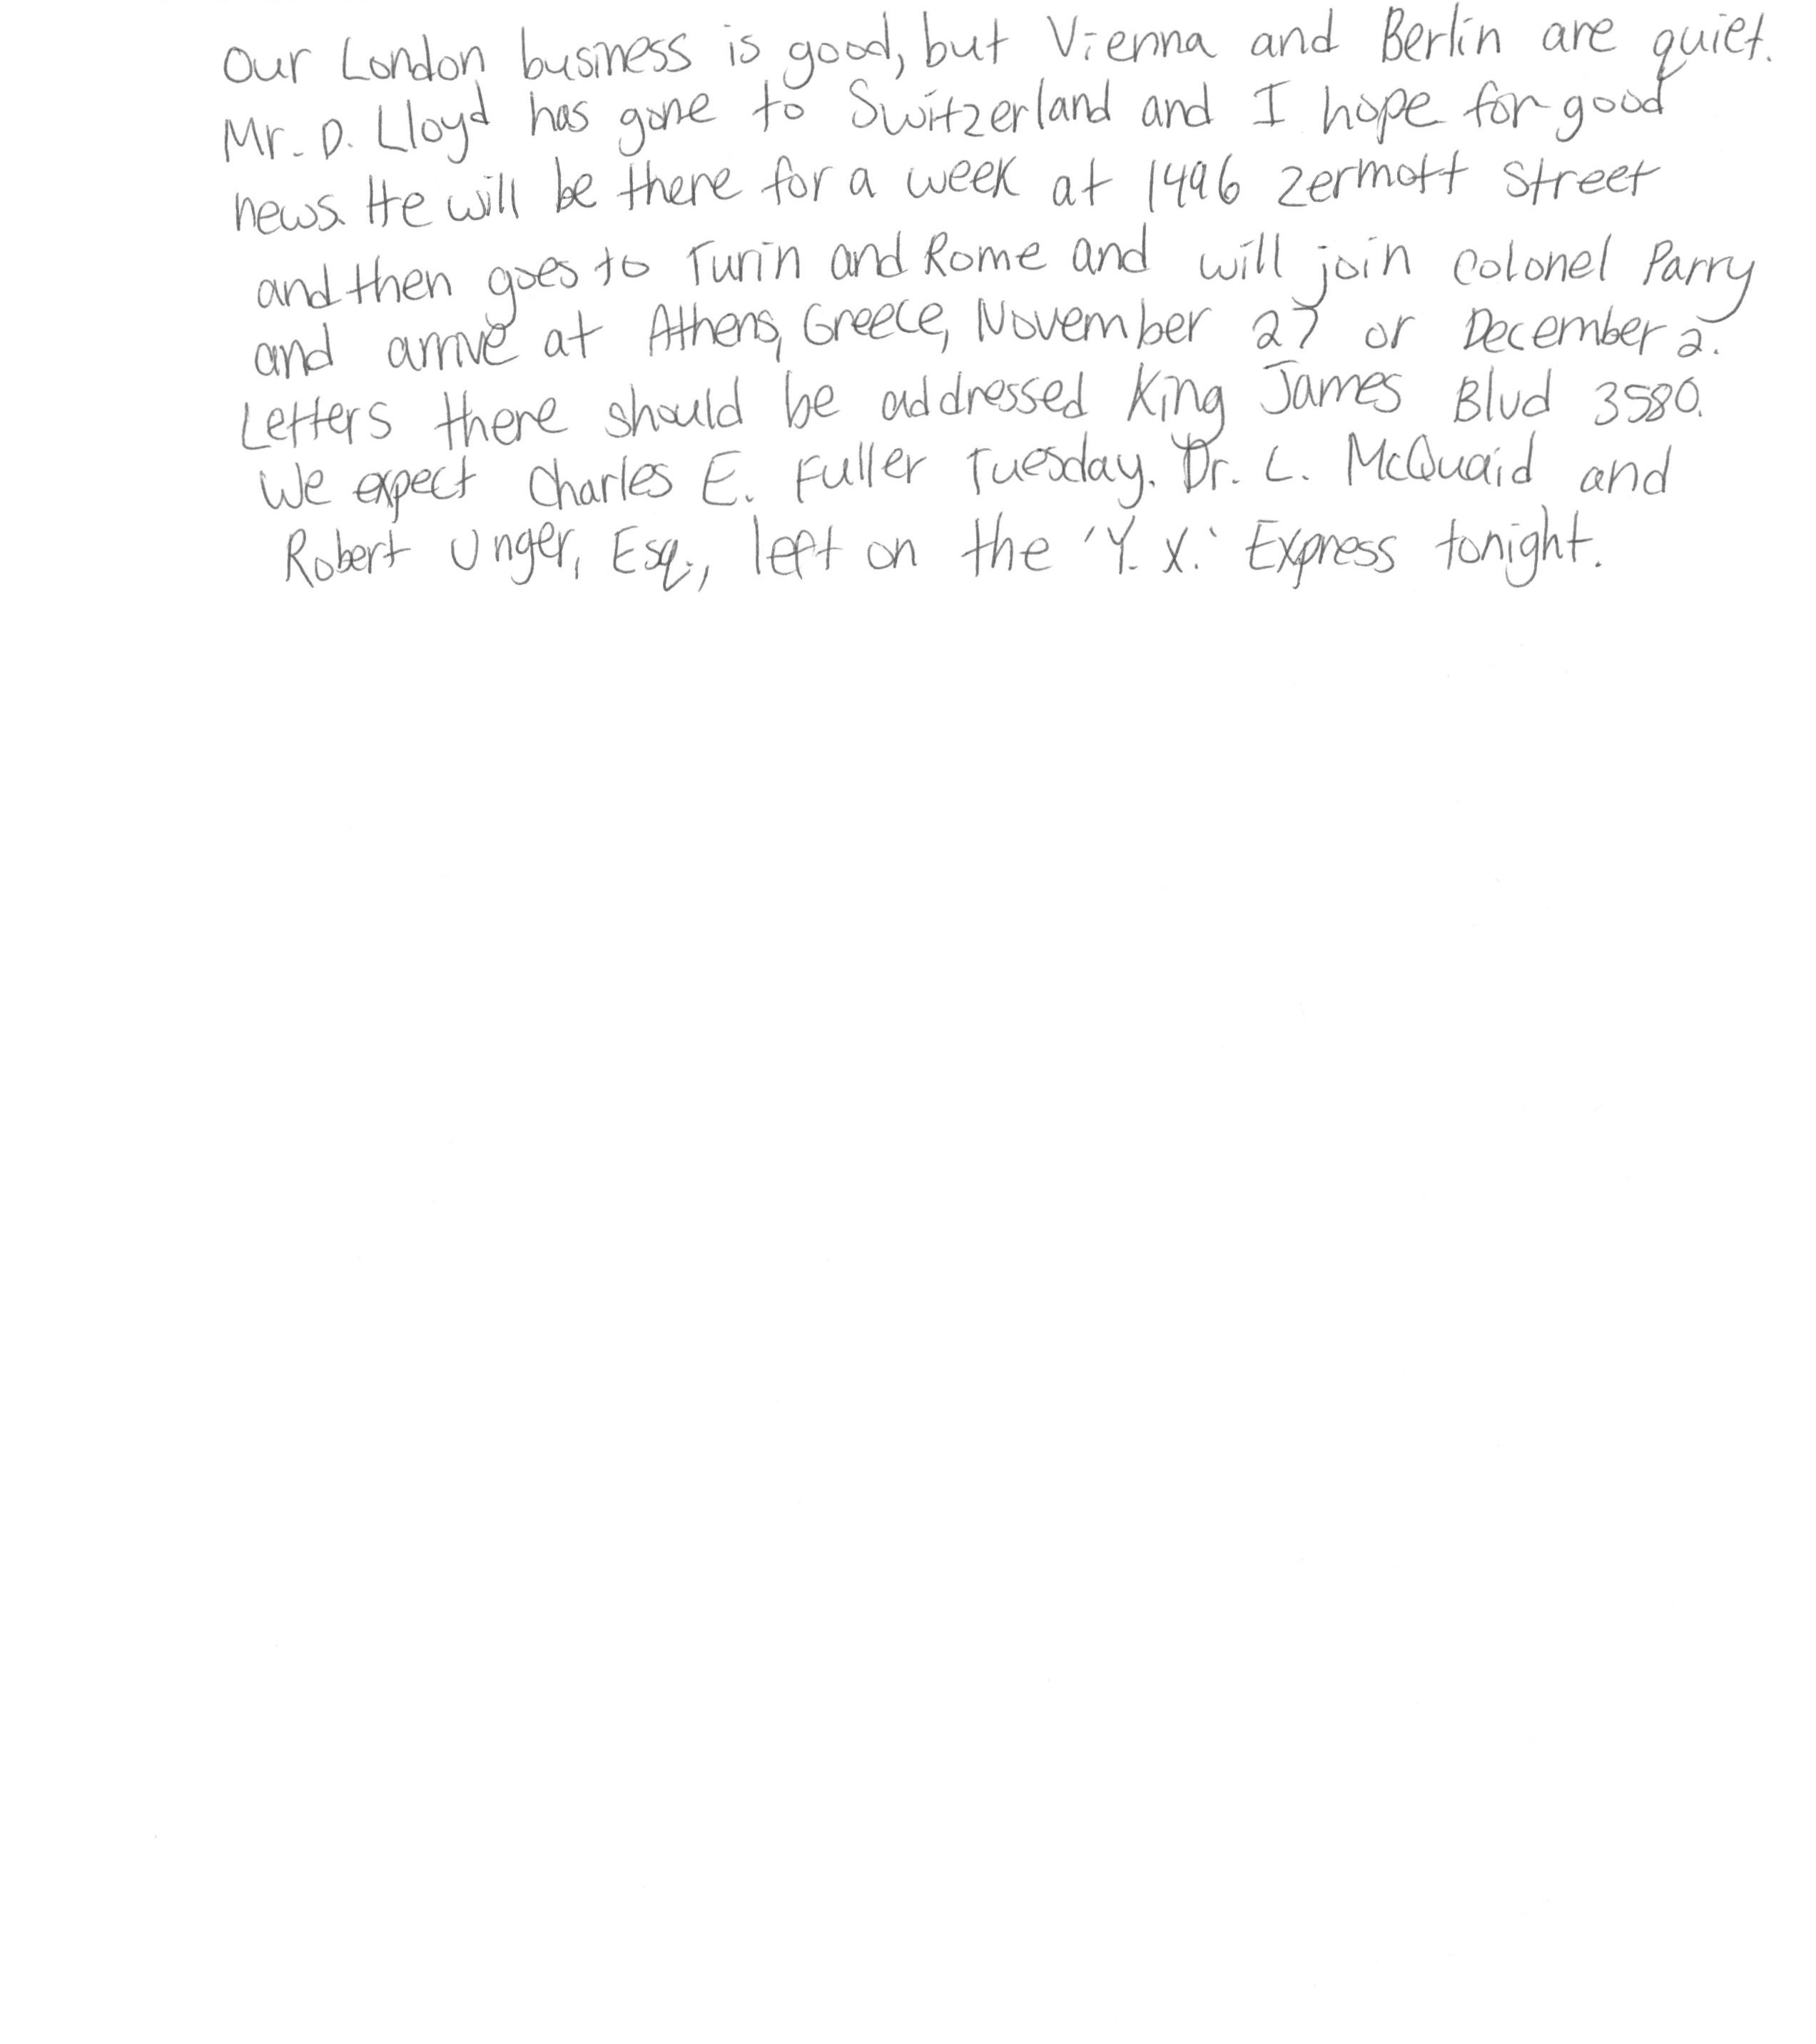 Our London business is good, but Vienna and Berlin are quiet.
Mr. D. Lloyd has gone to Switzerland and I hope for good
news. He will be there for a week at 1496 Zermott Street
and then goes to Turin and Rome and will join Colonel Parry
and arrive at Athens, Greece, November 27 or December 2.
Letters there should be addressed King James Blvd 3580.
We expect Charles E. Fuller Tuesday. Dr. L. McQuaid and
Robert Unger, Esq., left on the 'Y. X.' Express tonight.